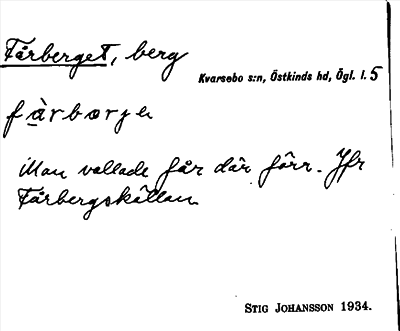 Fårberget, berg
Kvarsebo s:n, Östkinds hd, Ögl. l. 5
fàrbœrje
Man vallade får där förr. Jfr
Fårbergskällan
STIG JOHANSSON 1934.